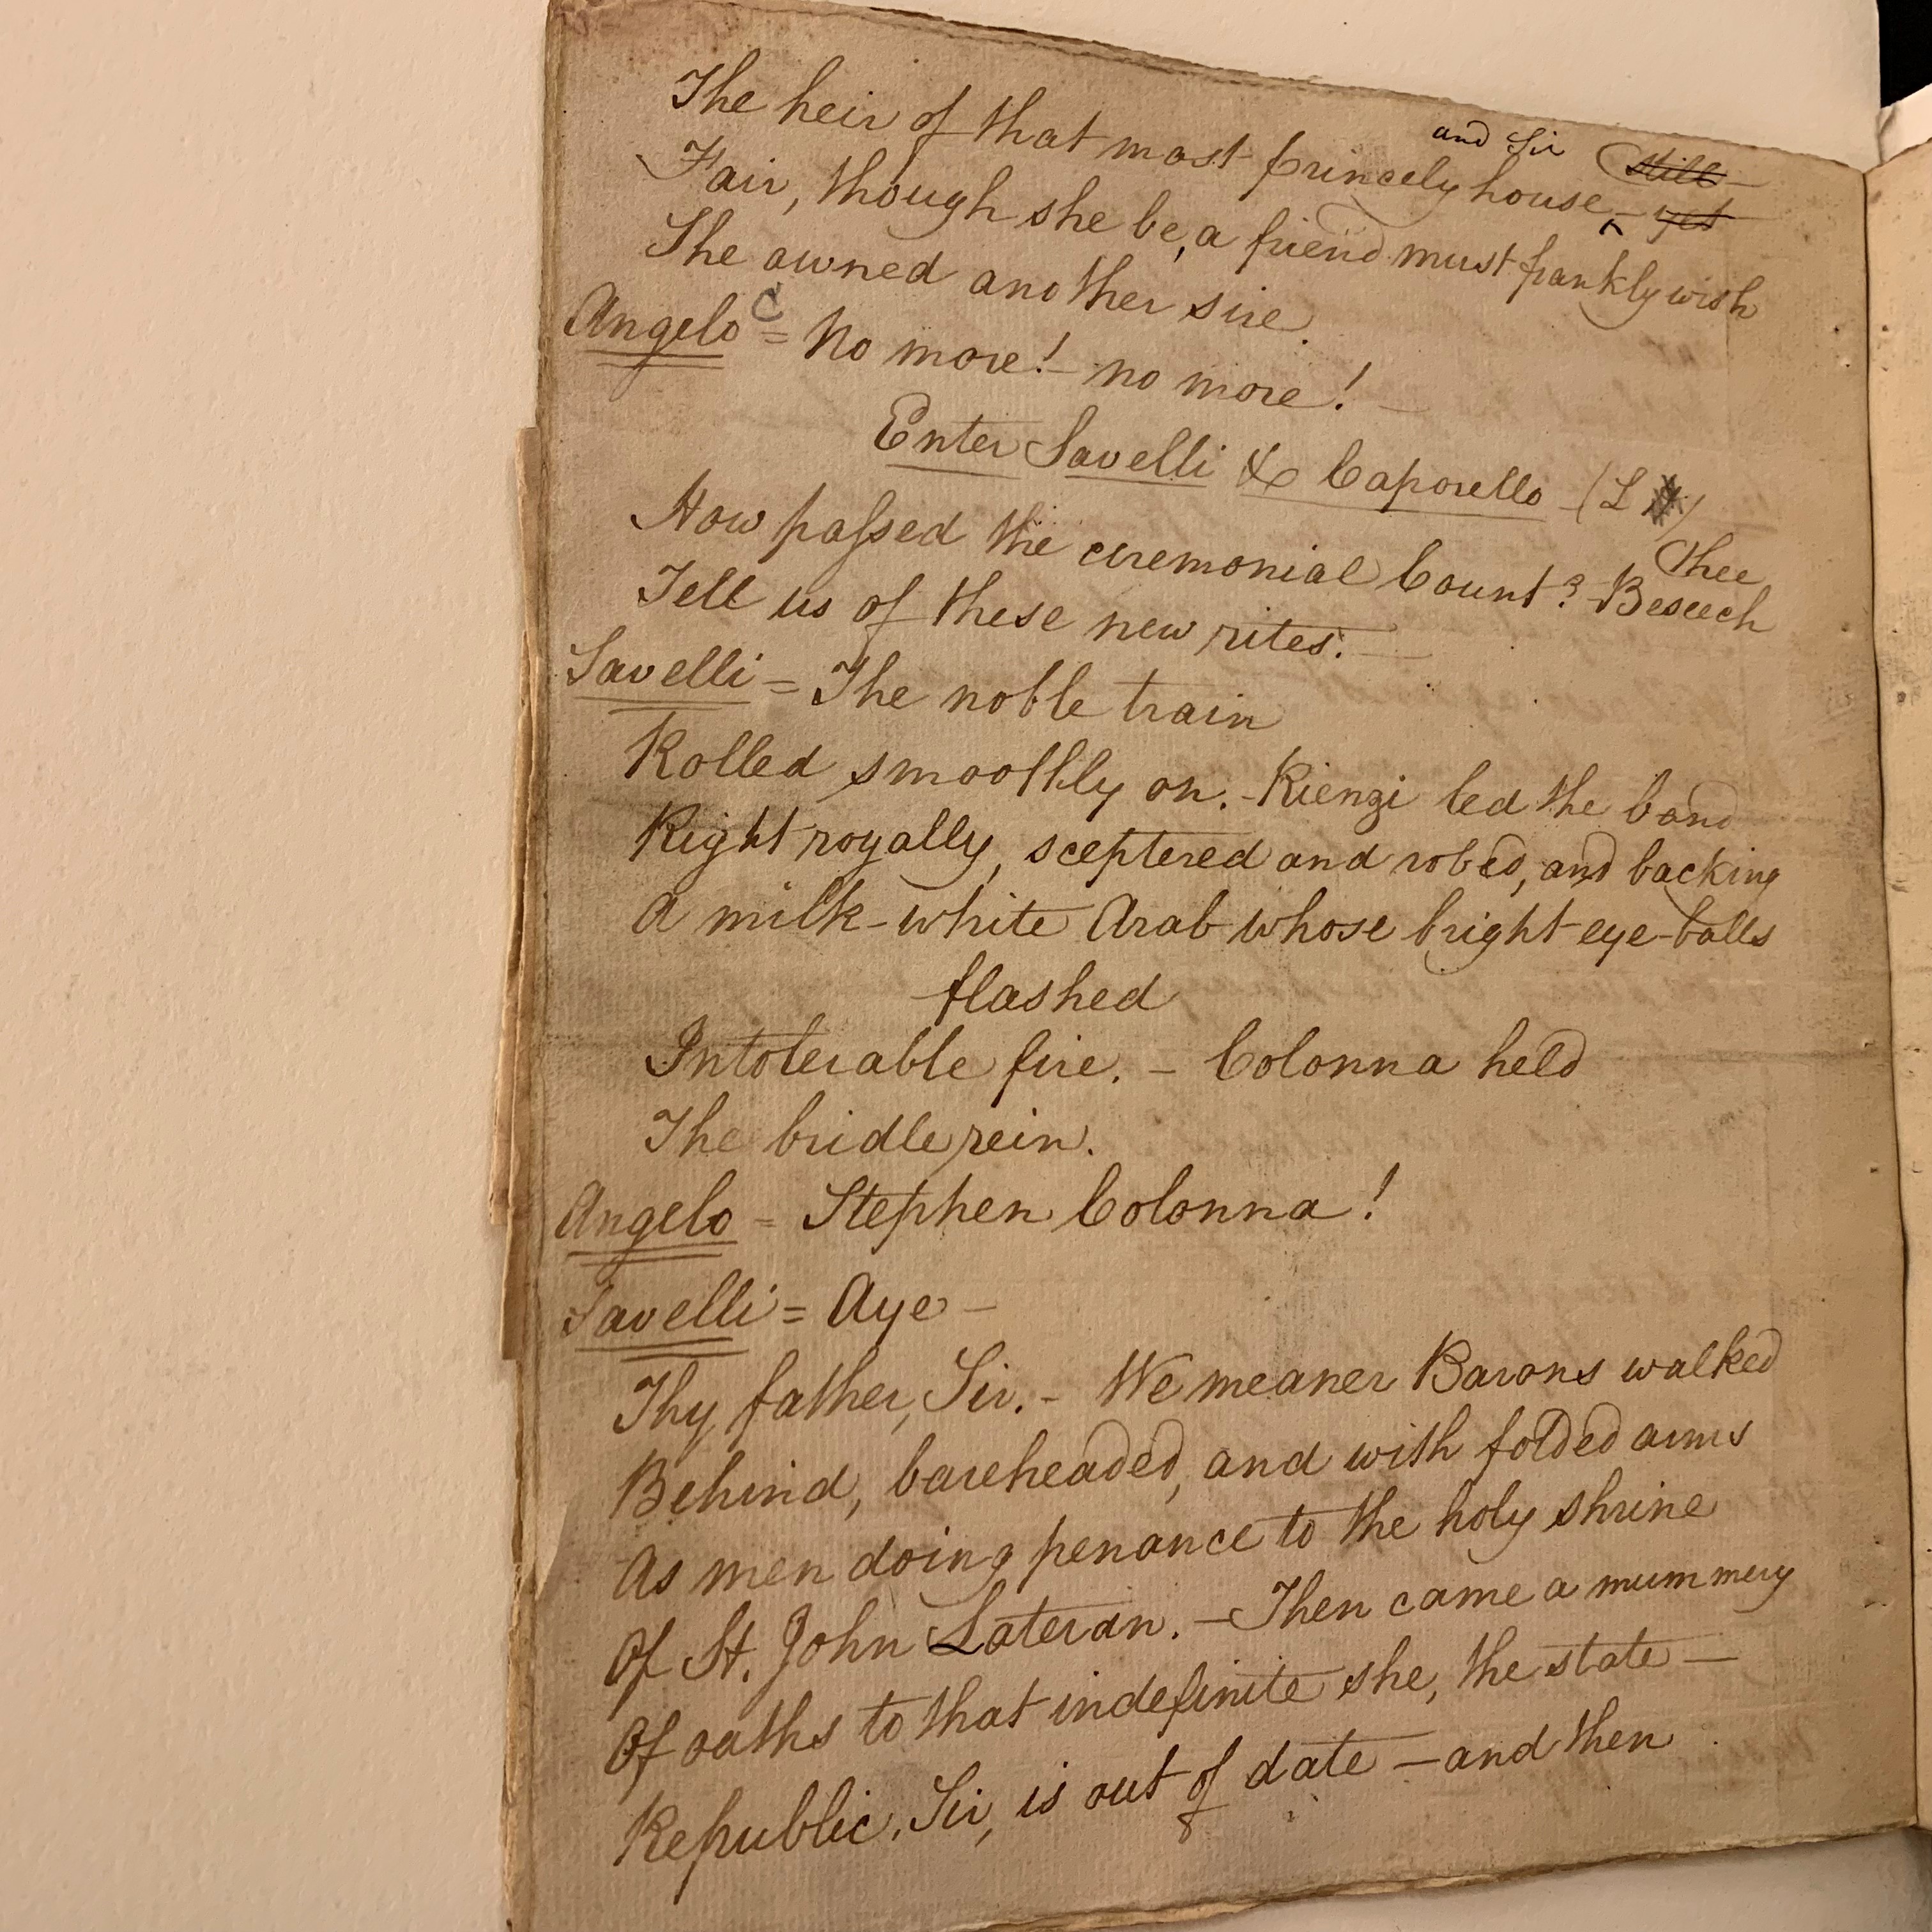 The heir of that most princely house, – and Sir still yet
Fair, though she be, a friend must frankly wish
She owned another sire.
Angelo = No more! – no more! –
C
Enter Savelli & Caporello – (L
How passed the ceremonial Count? – Beseech thee
Tell us of these new rites. –
Savelli = The noble train
Rolled smoothly on. – Rienzi led the band
Right royally, sceptered and robed, and backing
A milk-white Arab whose bright eye-balls
flashed
Intolerable fire. – Colonna held
The bridle rein.
Angelo = Stephen Colonna!
Savelli = Aye –
Thy father, Sir. – We meaner Barons walked
Behind, bareheaded, and with folded arms
As men doing penance to the holy shrine
Of St. John Lateran. – Then came a mummery
Of oaths to that indefinite she, the state –
Republic, Sir, is out of date – and then